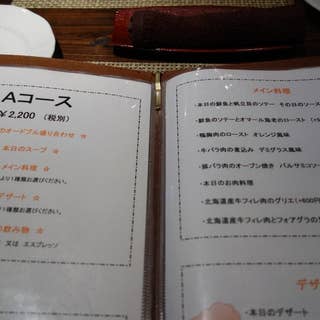 Aコース
¥2,200 (税別)
のオードブル盛り合わせ ☆
本日のスープ ☆
メイン料理 ☆
より1種類お選びください。
デザート ☆
り1種類お選びください。
飲み物 ☆
又は エスプレッソ
メイン料理
・本日の鮮魚と帆立貝のソテー その日のソース
・鮮魚のソテーとオマール海老のロースト
・鴨胸肉のロースト オレンジ風味
・牛バラ肉の煮込み デミグラス風味
・豚バラ肉のオーブン焼き バルサミコソー
・本日のお肉料理
・北海道産牛フィレ肉のグリエ(+600円
・北海道産牛フィレ肉とフォアグラの
デザ
・本日のデザート